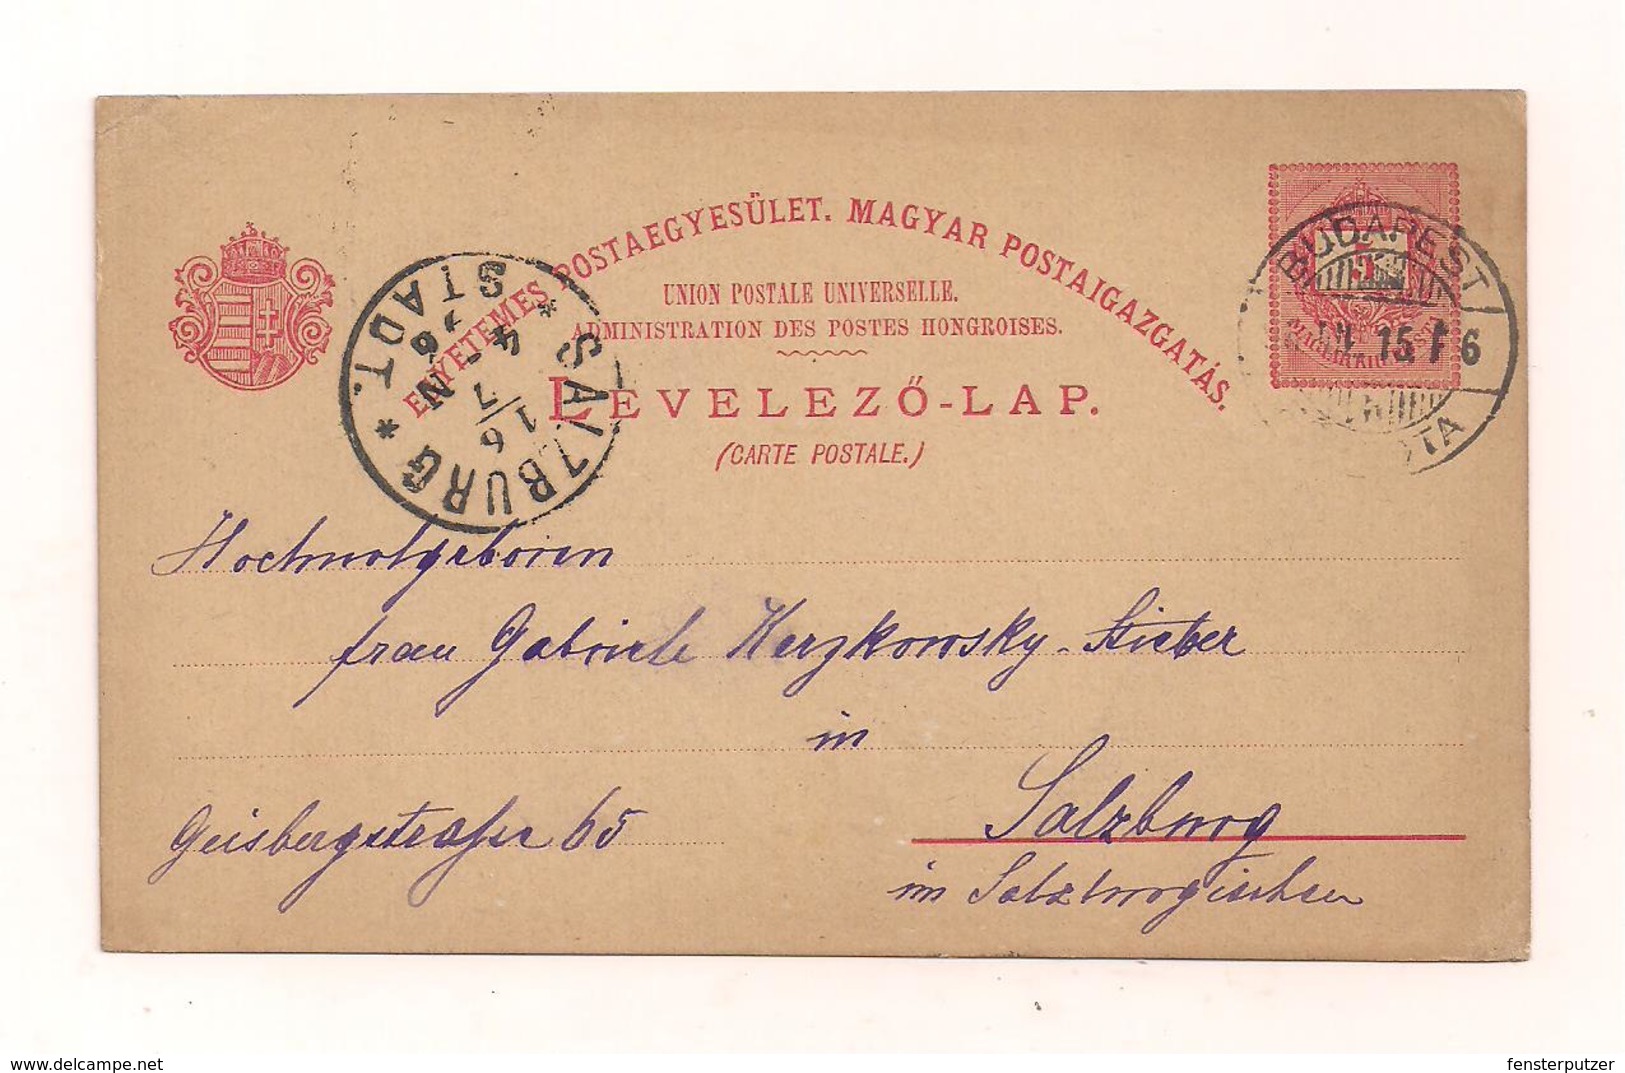 EGYETEMES POSTAEGYESÜLET. MAGYAR POSTAIGAZGATÁS.
UNION POSTALE UNIVERSELLE.
ADMINISTRATION DES POSTES HONGROISES.
LEVELEZŐ-LAP.
(CARTE POSTALE.)
* SALZBURG *
STADT.
16
7
4-N
96
BUDAPEST
15 F 6
Hochwolgeboren
frau Gabriele Kerzkowsky-Stieber
in
Salzburg
Geisbergstrasse 65
im Salzburgischen
www.delcampe.net
fensterputzer